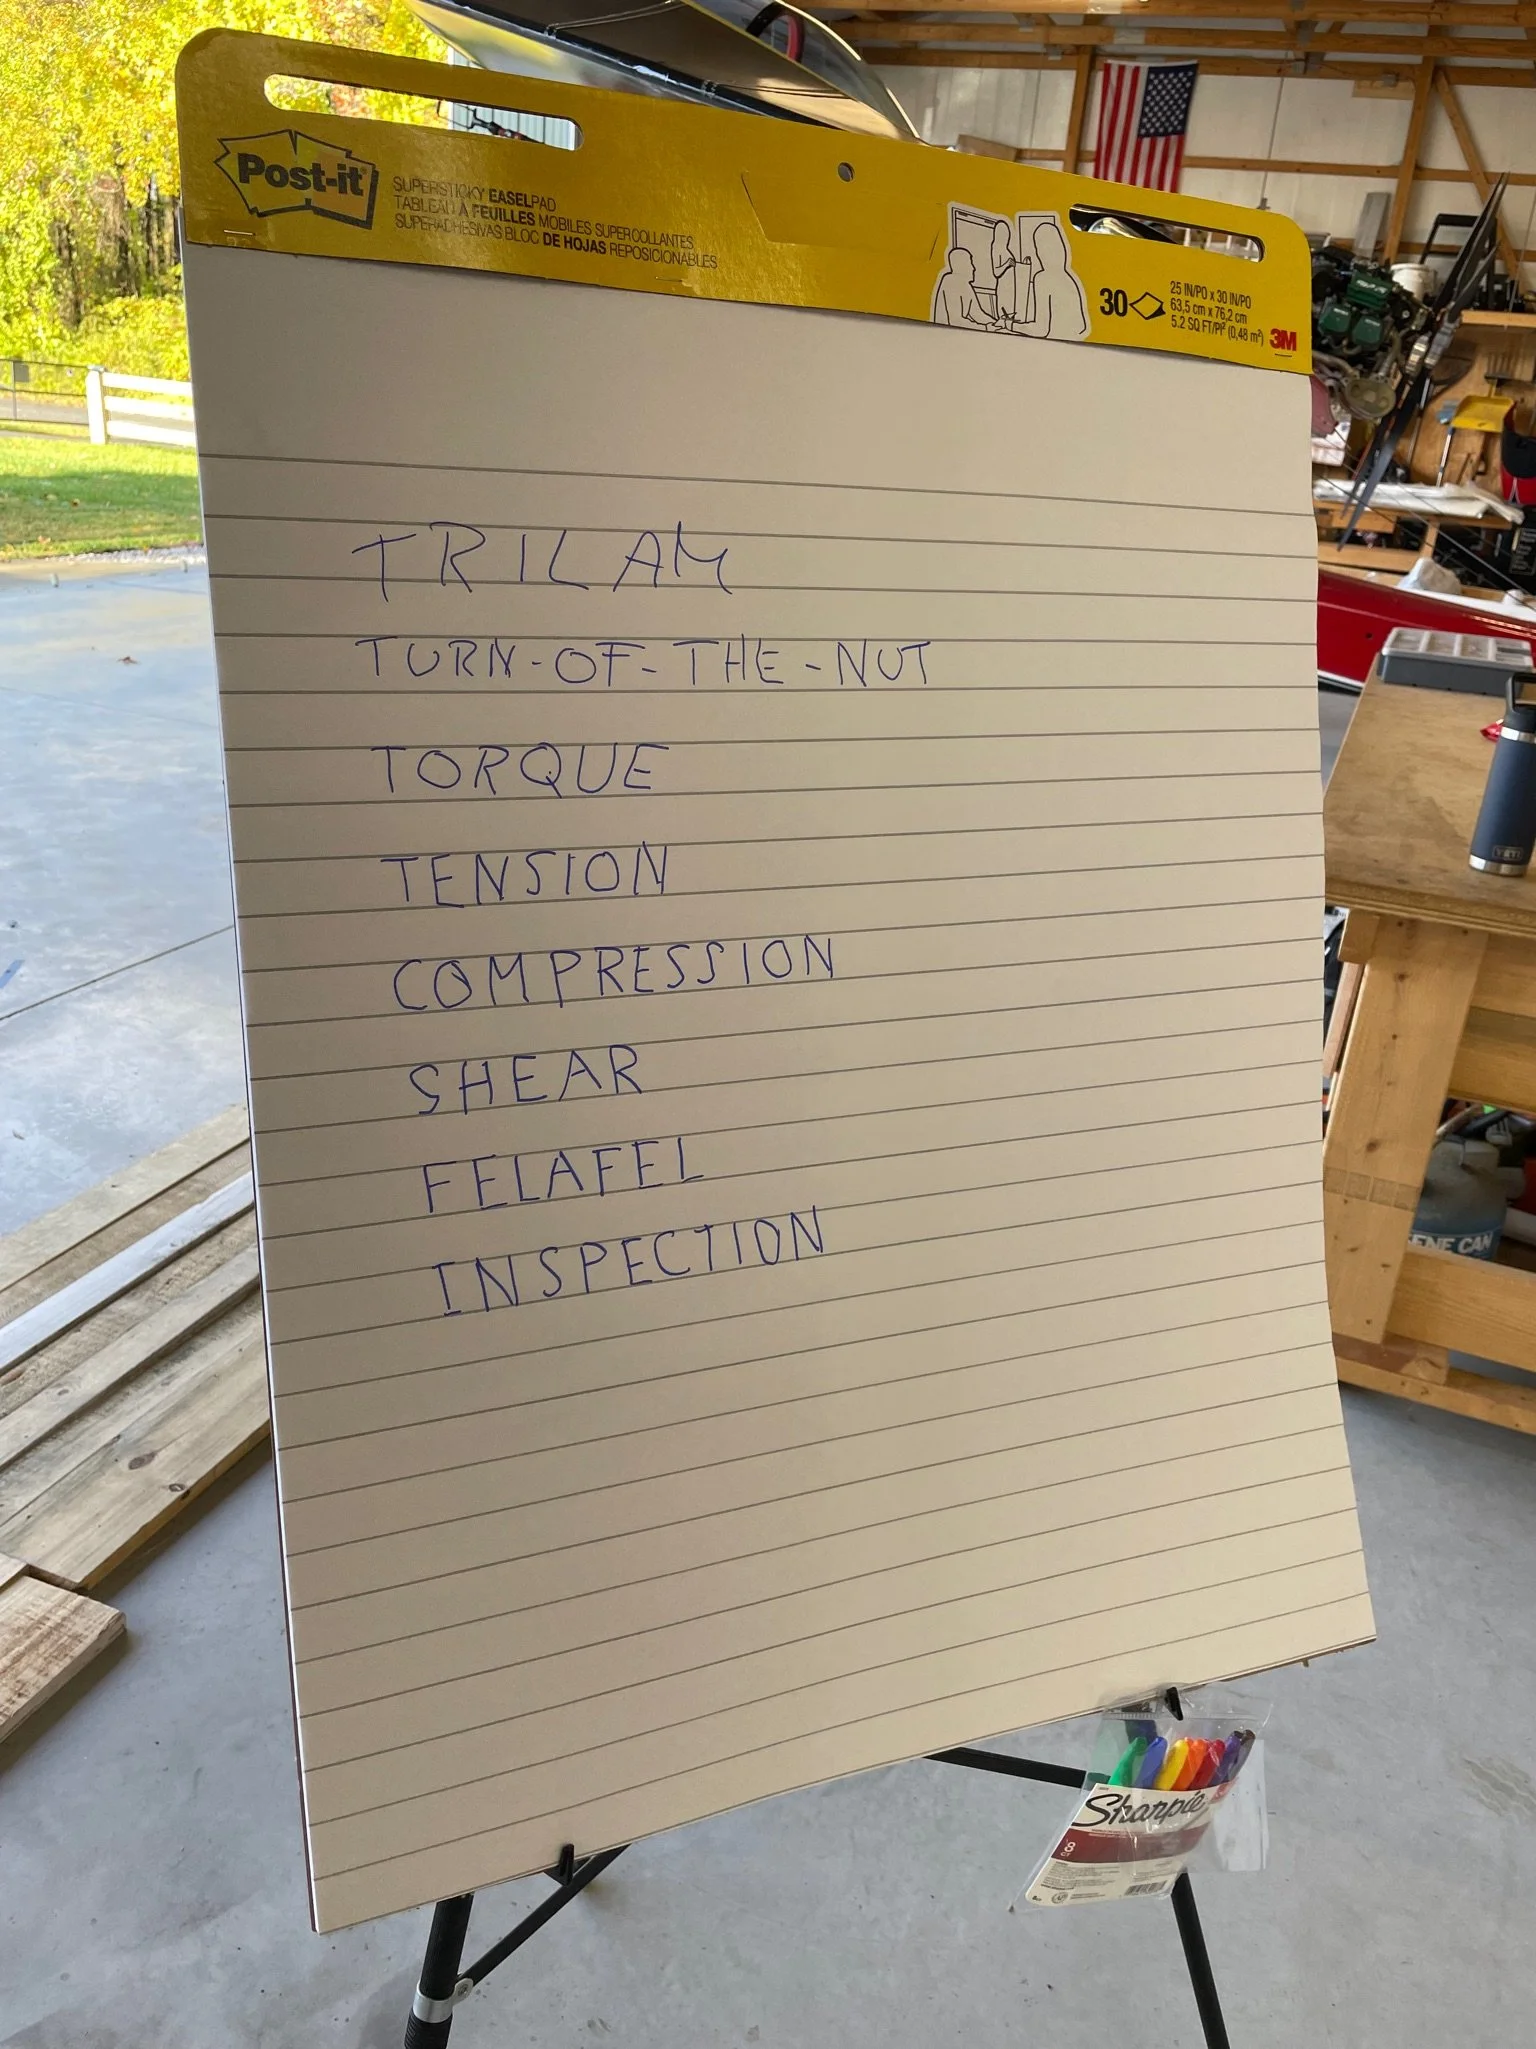 Post-it
SUPERSTICKY EASELPAD
TABLEAU À FEUILLES MOBILES SUPERCOLLANTES
SUPERADHESIVAS BLOC DE HOJAS REPOSICIONABLES
30
25 IN/PO x 30 IN/PO
63,5 cm x 76,2 cm
5.2 SQ FT/PI² (0,48 m²)
3M
TRILAM
TURN-OF-THE-NUT
TORQUE
TENSION
COMPRESSION
SHEAR
FELAFEL
INSPECTION
YETI
ENE CAN
Sharpie
8